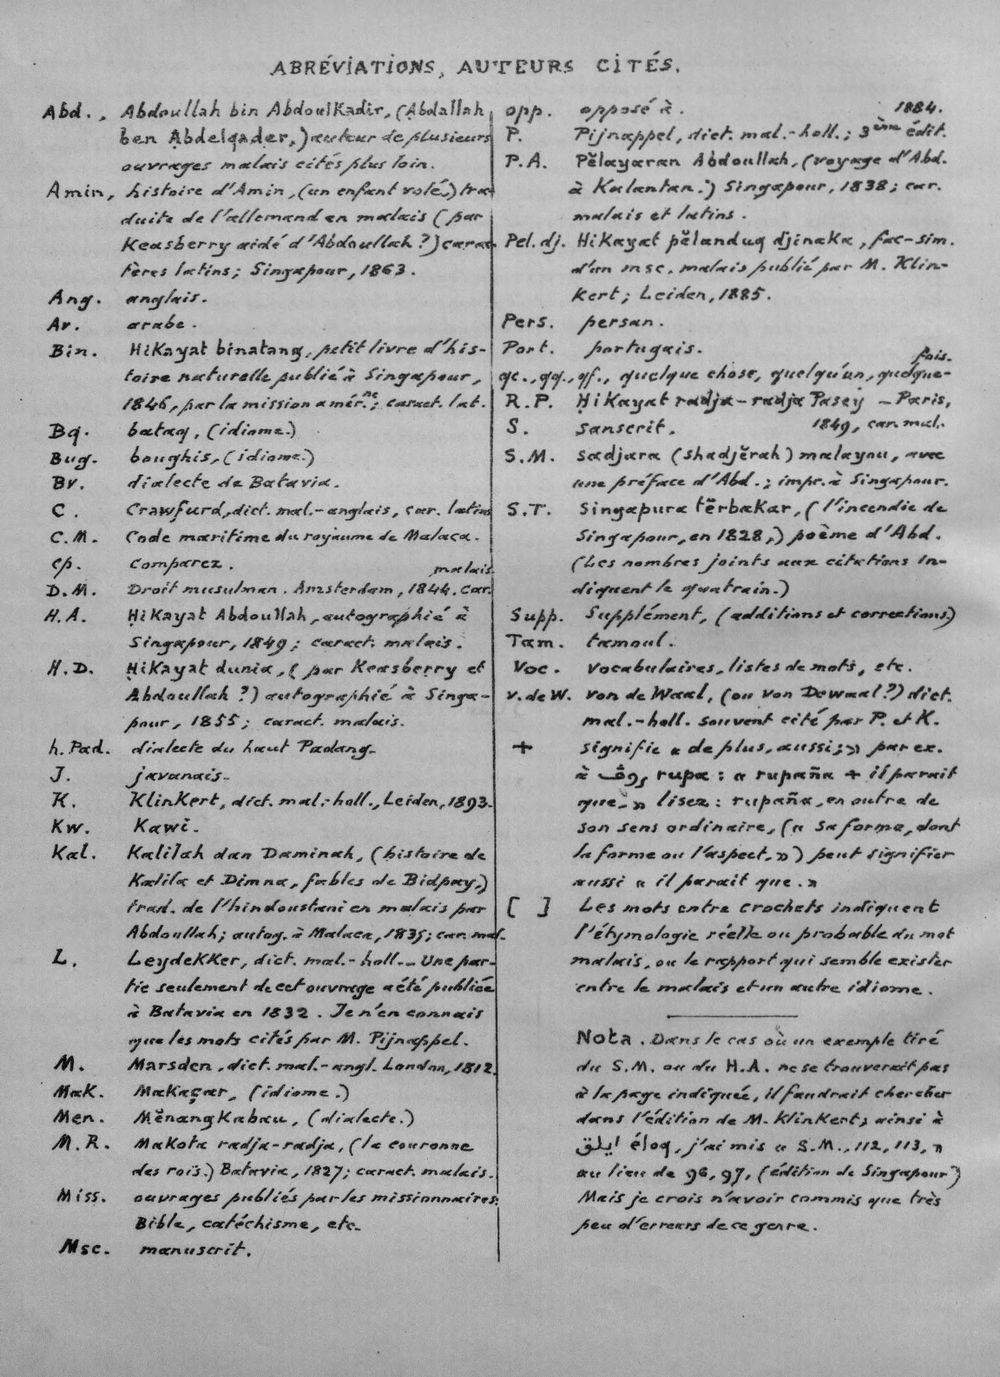 ABRÉVIATIONS, AUTEURS CITÉS.
Abd., Abdoullah bin Abdoulkadir, (Abdallah
ben Abdelqader,) auteur de plusieurs
ouvrages malais cités plus loin.
Amin, histoire d'Amin, (un enfant volé,) tra-
duite de l'allemand en malais (par
Keasberry aidé d'Abdoullah?) carac-
tères latins; Singapour, 1863.
Ang. anglais.
Ar. arabe.
Bin. Hikayat binatang, petit livre d'his-
toire naturelle publié à Singapour,
1846, par la mission amér.ne; caract. lat.
Bq. bataq, (idiome.)
Bug. boughis, (idiome.)
Bv. dialecte de Batavia.
C. Crawfurd, dict. mal.-anglais, car. latins
C.M. Code maritime du royaume de Malaca.
cp. comparez.
D.M. Droit musulman. Amsterdam, 1844. car. malais.
H.A. Ḥikayat Abdoullah, autographié à
Singapour, 1849; caract. malais.
H.D. Ḥikayat dunia, (par Keasberry et
Abdoullah?) autographié à Singa-
pour, 1855; caract. malais.
h. Pad. dialecte du haut Padang.
J. javanais.
K. Klinkert, dict. mal.-holl., Leiden, 1893.
Kw. Kawi.
Kal. Kalilah dan Daminah, (histoire de
Kalila et Dimna, fables de Bidpay,)
trad. de l'hindoustani en malais par
Abdoullah; autog. à Malaca, 1835; car. mal.
L. Leydekker, dict. mal.-holl. - Une par-
tie seulement de cet ouvrage a été publiée
à Batavia en 1832. Je n'en connais
que les mots cités par M. Pijnappel.
M. Marsden, dict. mal.-angl. London, 1812.
Mak. Makaçar, (idiome.)
Men. Mĕnangkabau, (dialecte.)
M.R. Makota radja-radja, (la couronne
des rois.) Batavia, 1827; caract. malais.
Miss. ouvrages publiés par les missionnaires:
Bible, catéchisme, etc.
Msc. manuscrit.
opp. opposé à.
P. Pijnappel, dict. mal.-holl.; 3ème édit. 1884.
P.A. Pĕlayaran Abdoullah, (voyage d'Abd.
à Kalantan.) Singapour, 1838; car.
malais et latins.
Pel. dj. Hikayat pĕlanduq djinaka, fac-sim.
d'un msc. malais publié par M. Klin-
kert; Leiden, 1885.
Pers. persan.
Port. portugais.
qc., qq., qf., quelque chose, quelqu'un, quelque-fois.
R.P. Ḥikayat radja-radja Pasey - Paris,
1849, car. mal.
S. sanscrit.
S.M. sadjara (shadjĕrah) malayou, avec
une préface d'Abd.; impr. à Singapour.
S.T. Singapura tĕrbakar, (l'incendie de
Singapour, en 1828,) poème d'Abd.
(Les nombres joints aux citations in-
diquent le quatrain.)
Supp. Supplément, (additions et corrections)
Tam. tamoul.
Voc. vocabulaires, listes de mots, etc.
v. de W. von de Waal, (ou von Dewaal?) dict.
mal.-holl. souvent cité par P. et K.
+ signifie « de plus, aussi; » par ex.
à روڤ rupa: « rupaña + il parait
que, » lisez: rupaña, en outre de
son sens ordinaire, (« sa forme, dont
la forme ou l'aspect, ») peut signifier
aussi « il parait que. »
[ ] Les mots entre crochets indiquent
l'étymologie réelle ou probable du mot
malais, ou le rapport qui semble exister
entre le malais et un autre idiome.
Nota. Dans le cas où un exemple tiré
du S.M. ou du H.A. ne se trouverait pas
à la page indiquée, il faudrait chercher
dans l'édition de M. Klinkert; ainsi à
ايلق éloq, j'ai mis « S.M., 112, 113, »
au lieu de 96, 97, (édition de Singapour)
Mais je crois n'avoir commis que très
peu d'erreurs de ce genre.